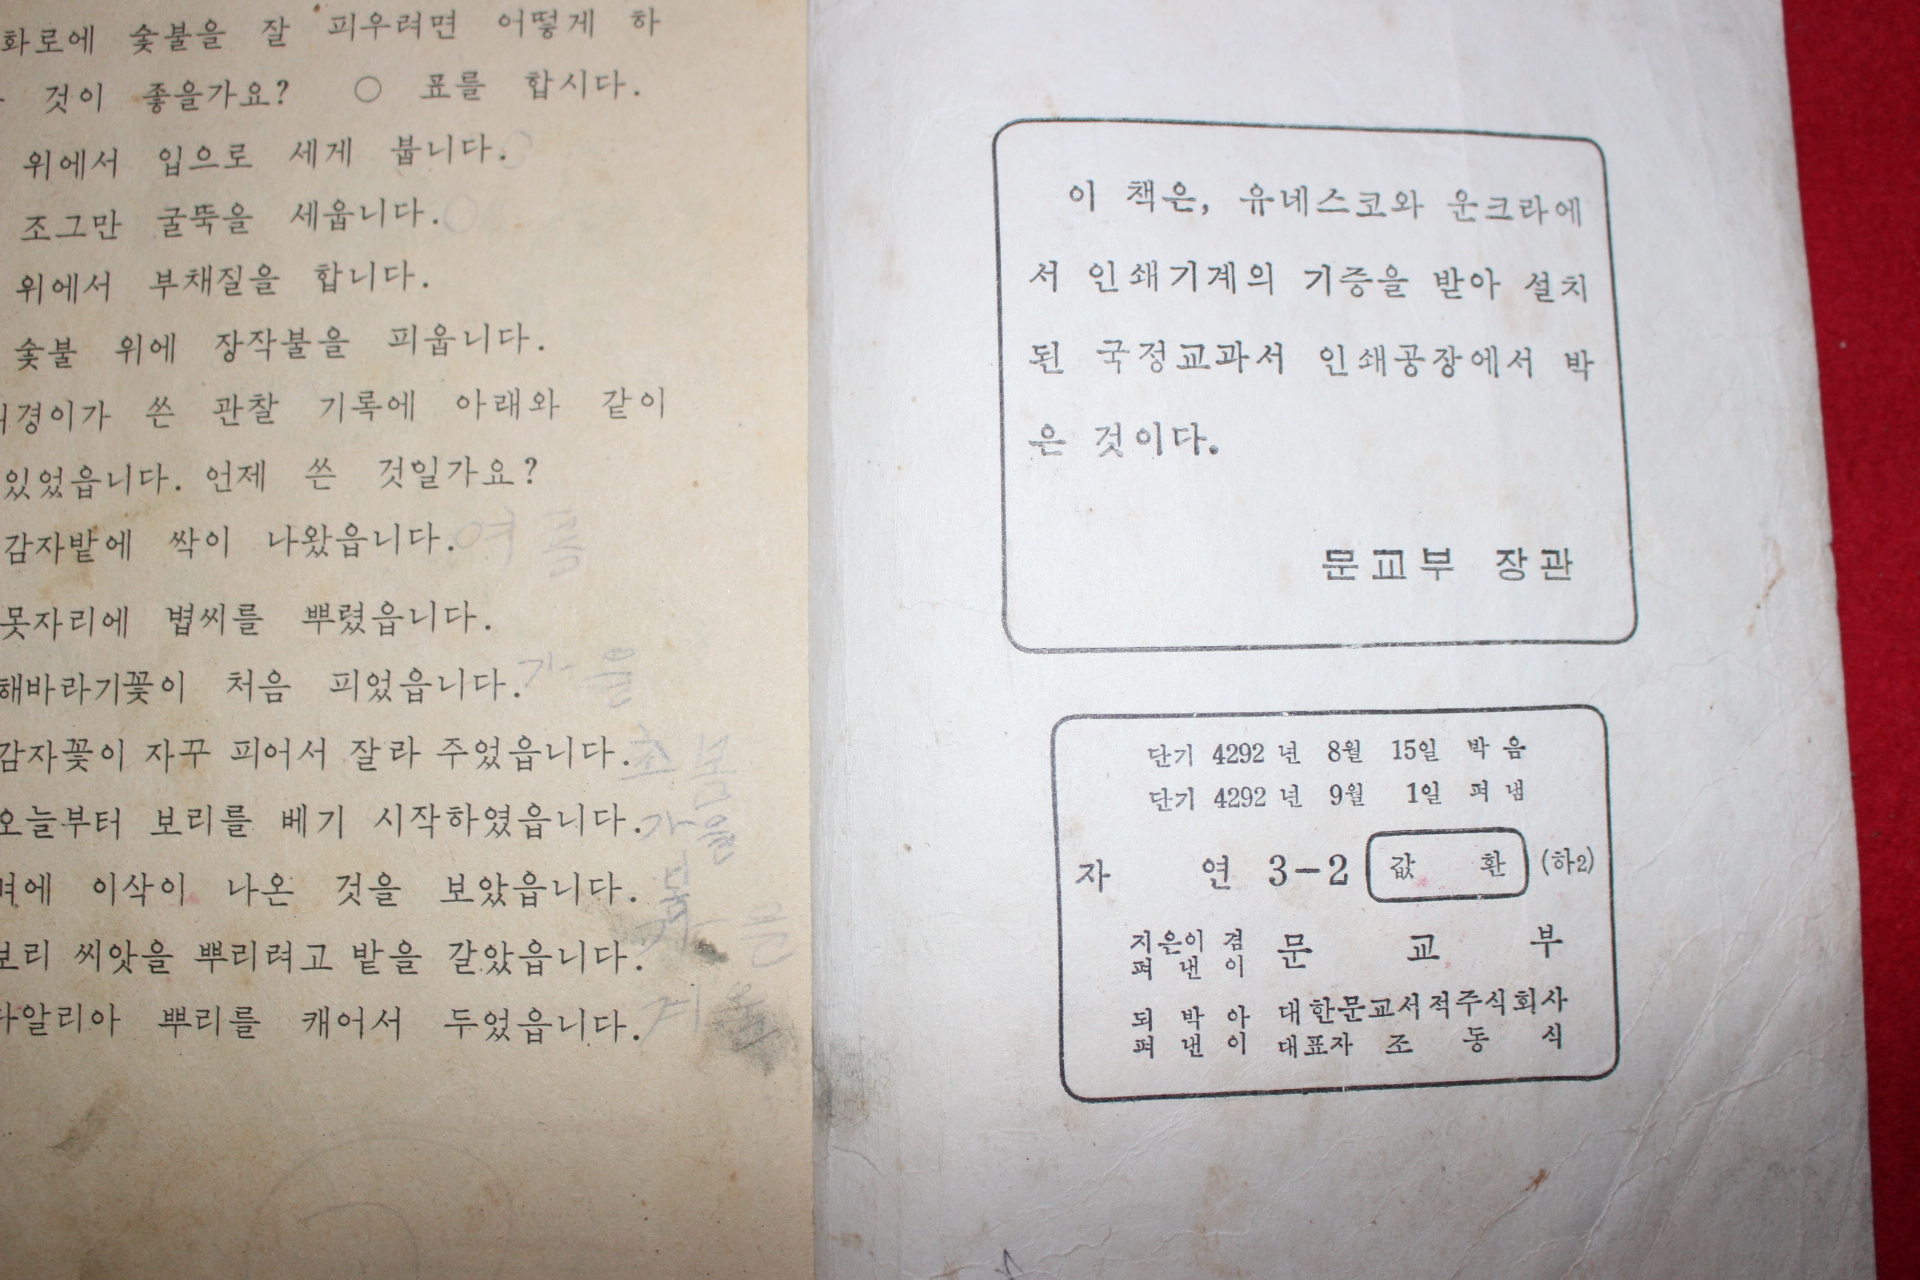 화로에 숯불을 잘 피우려면 어떻게 하
것이 좋을가요? ○ 표를 합시다.
위에서 입으로 세게 붑니다.
조그만 굴뚝을 세웁니다.
위에서 부채질을 합니다.
숯불 위에 장작불을 피웁니다.
경이가 쓴 관찰 기록에 아래와 같이
있었읍니다. 언제 쓴 것일가요?
감자밭에 싹이 나왔읍니다. 여름
못자리에 볍씨를 뿌렸읍니다.
해바라기꽃이 처음 피었읍니다. 가을
감자꽃이 자꾸 피어서 잘라 주었읍니다. 초봄
오늘부터 보리를 베기 시작하였읍니다. 가을
에 이삭이 나온 것을 보았읍니다. 봄
보리 씨앗을 뿌리려고 밭을 갈았읍니다.
다알리아 뿌리를 캐어서 두었읍니다. 겨울
이 책은, 유네스코와 운크라에
서 인쇄기계의 기증을 받아 설치
된 국정교과서 인쇄공장에서 박
은 것이다.
문교부 장관
단기 4292 년 8월 15일 박음
단기 4292 년 9월 1일 펴냄
자 연 3-2 값 환 (하2)
지은이 겸
펴 낸 이 문 교 부
되 박 아 대한문교서적주식회사
펴 낸 이 대표자 조 동 식